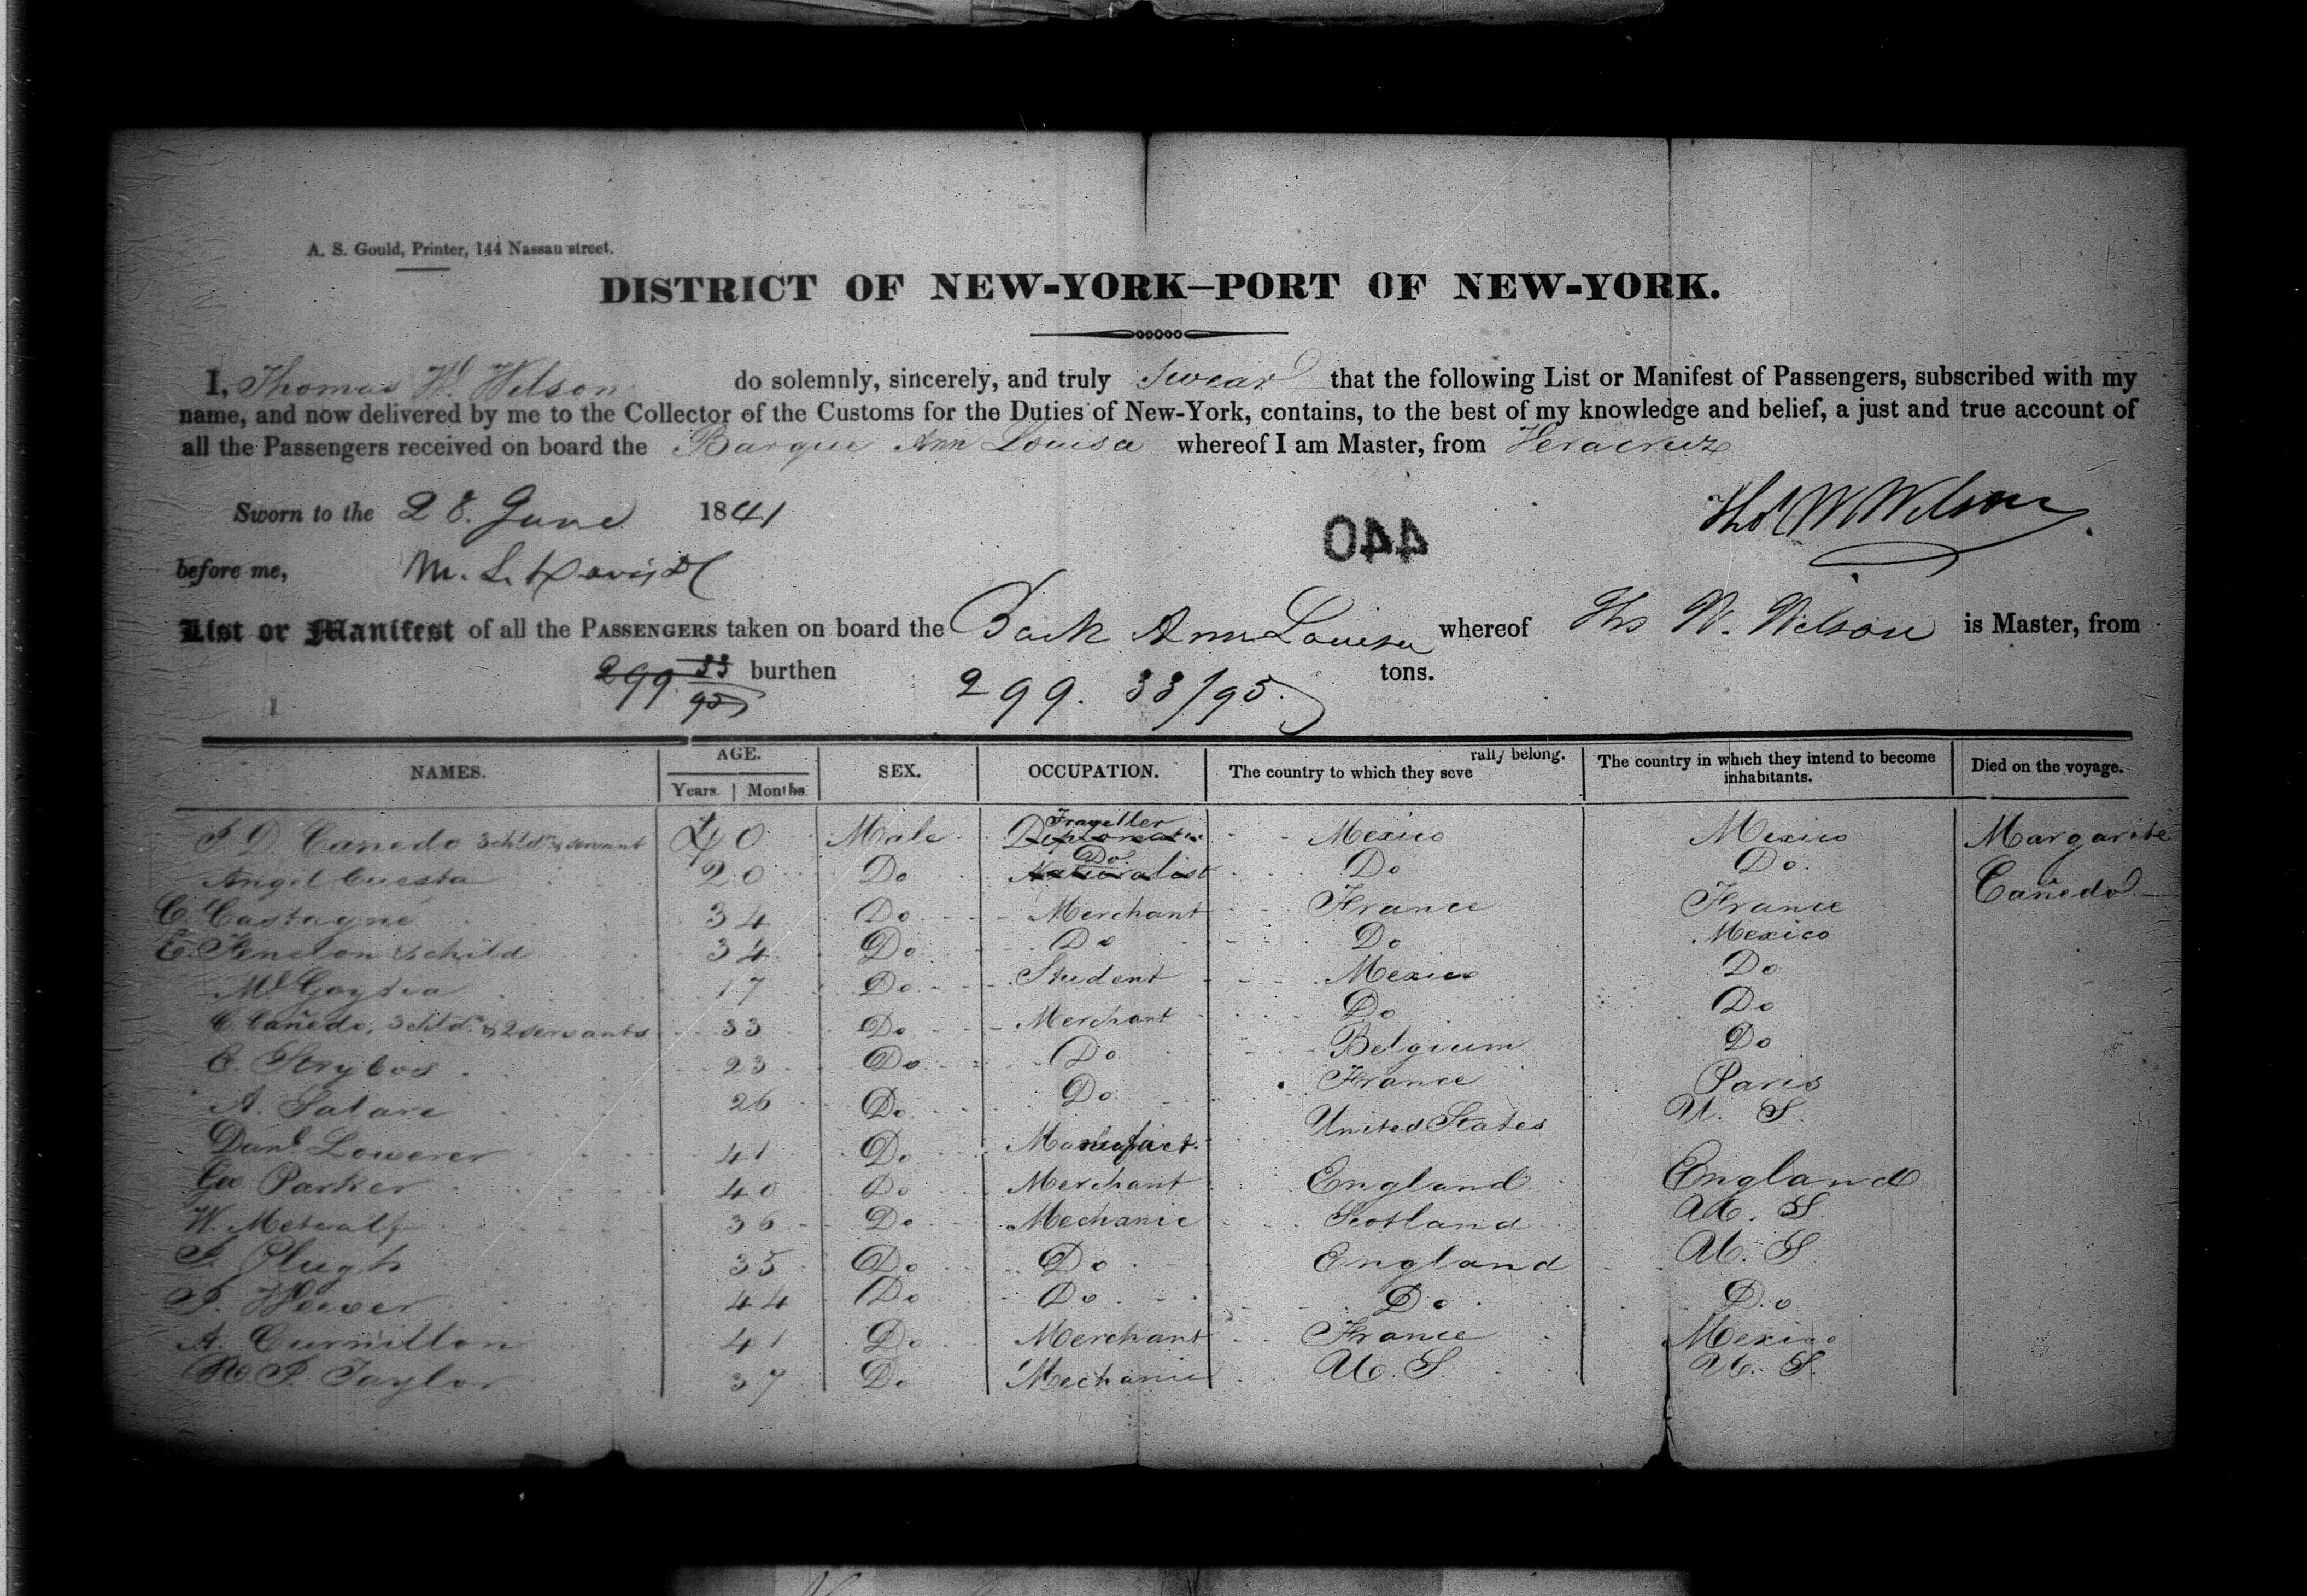 A. S. Gould, Printer, 144 Nassau street.
DISTRICT OF NEW-YORK—PORT OF NEW-YORK.
I, Thomas W. Wilson do solemnly, sincerely, and truly swear that the following List or Manifest of Passengers, subscribed with my
name, and now delivered by me to the Collector of the Customs for the Duties of New-York, contains, to the best of my knowledge and belief, a just and true account of
all the Passengers received on board the Barque Ann Louisa whereof I am Master, from Veracruz
Sworn to the 28. June 1841
Thos W Wilson
440
before me, M. L. Davis
List or Manifest of all the PASSENGERS taken on board the Bark Ann Louisa whereof Ths W. Wilson is Master, from
299 33/95 burthen 299. 33/95. tons.
NAMES. AGE. Years. Months. SEX. OCCUPATION. The country to which they seve rally belong. The country in which they intend to become inhabitants. Died on the voyage.
J. D. Canedo 3 child.n & servant 40 Male Traveller Mexico Mexico Margarite
Angel Cuesta 20 Do Do. Naturalist Do Do. Cañedo
C. Castagne 34 Do Merchant France France
E. Fenelon & child 34 Do Do Do Mexico
M. Goytia 17 Do Student Mexico Do
C. Cañedo, 3 child.n & 2 servants 33 Do Merchant Do Do
C. Strybos 23 Do Do Belgium Do
A. 26 Do Do France Paris
Danl. Lowerer 41 Do Manufact. United States U. S.
Geo Parker 40 Do Merchant England England
W. Metcalf 36 Do Mechanic Scotland U. S.
J. Plugh 35 Do Do England U. S.
J. 44 Do Do Do Do
A. Curmillon 41 Do Merchant France Mexico
J. Taylor 37 Do Mechanic U. S. U. S.